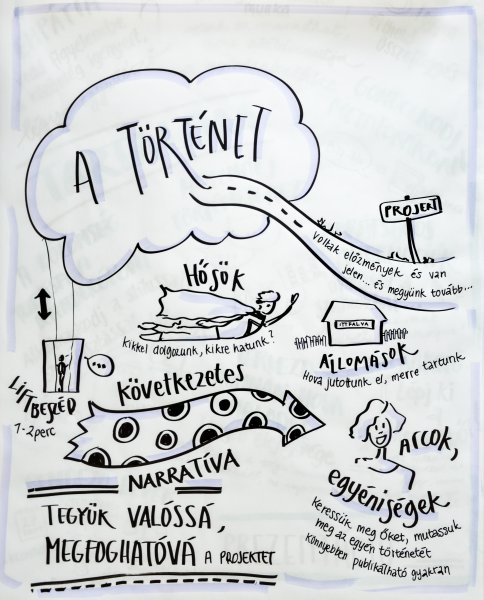 A TÖRTÉNET
PROJEKT
voltak előzmények és van
jelen... és megyünk tovább...
HŐSÖK
kikkel dolgozunk, kikre hatunk?
ITTFALVA
ÁLLOMÁSOK
Hova jutottunk el, merre tartunk
LIFTBESZÉD
1-2 perc
következetes
NARRATÍVA
ARCOK,
egyéniségek
keressük meg őket, mutassuk
meg az egyén történetét
könnyebben publikálható gyakran
TEGYÜK VALÓSSÁ,
MEGFOGHATÓVÁ A PROJEKTET